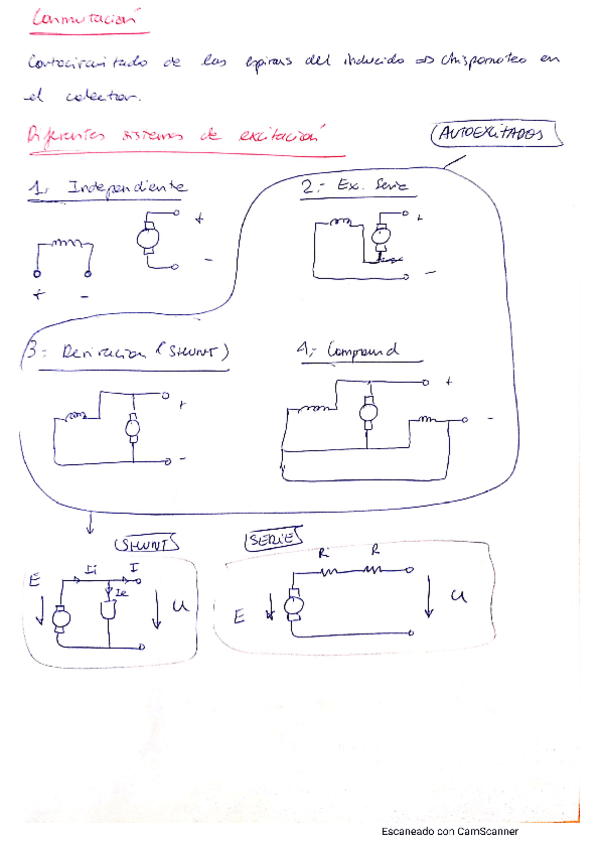 Conmutación
Cortocircuitado de las espiras del inducido => chisporroteo en
el colector.
Diferentes sistemas de excitación
AUTOEXCITADOS
1.- Independiente
2.- Ex. Serie
+
-
+
-
+ -
3.- Derivacion (SHUNT)
4.- Compound
+
-
+
-
SHUNT
SERIE
E
Ii
I
Ie
U
Ri
R
E
U
Escaneado con CamScanner